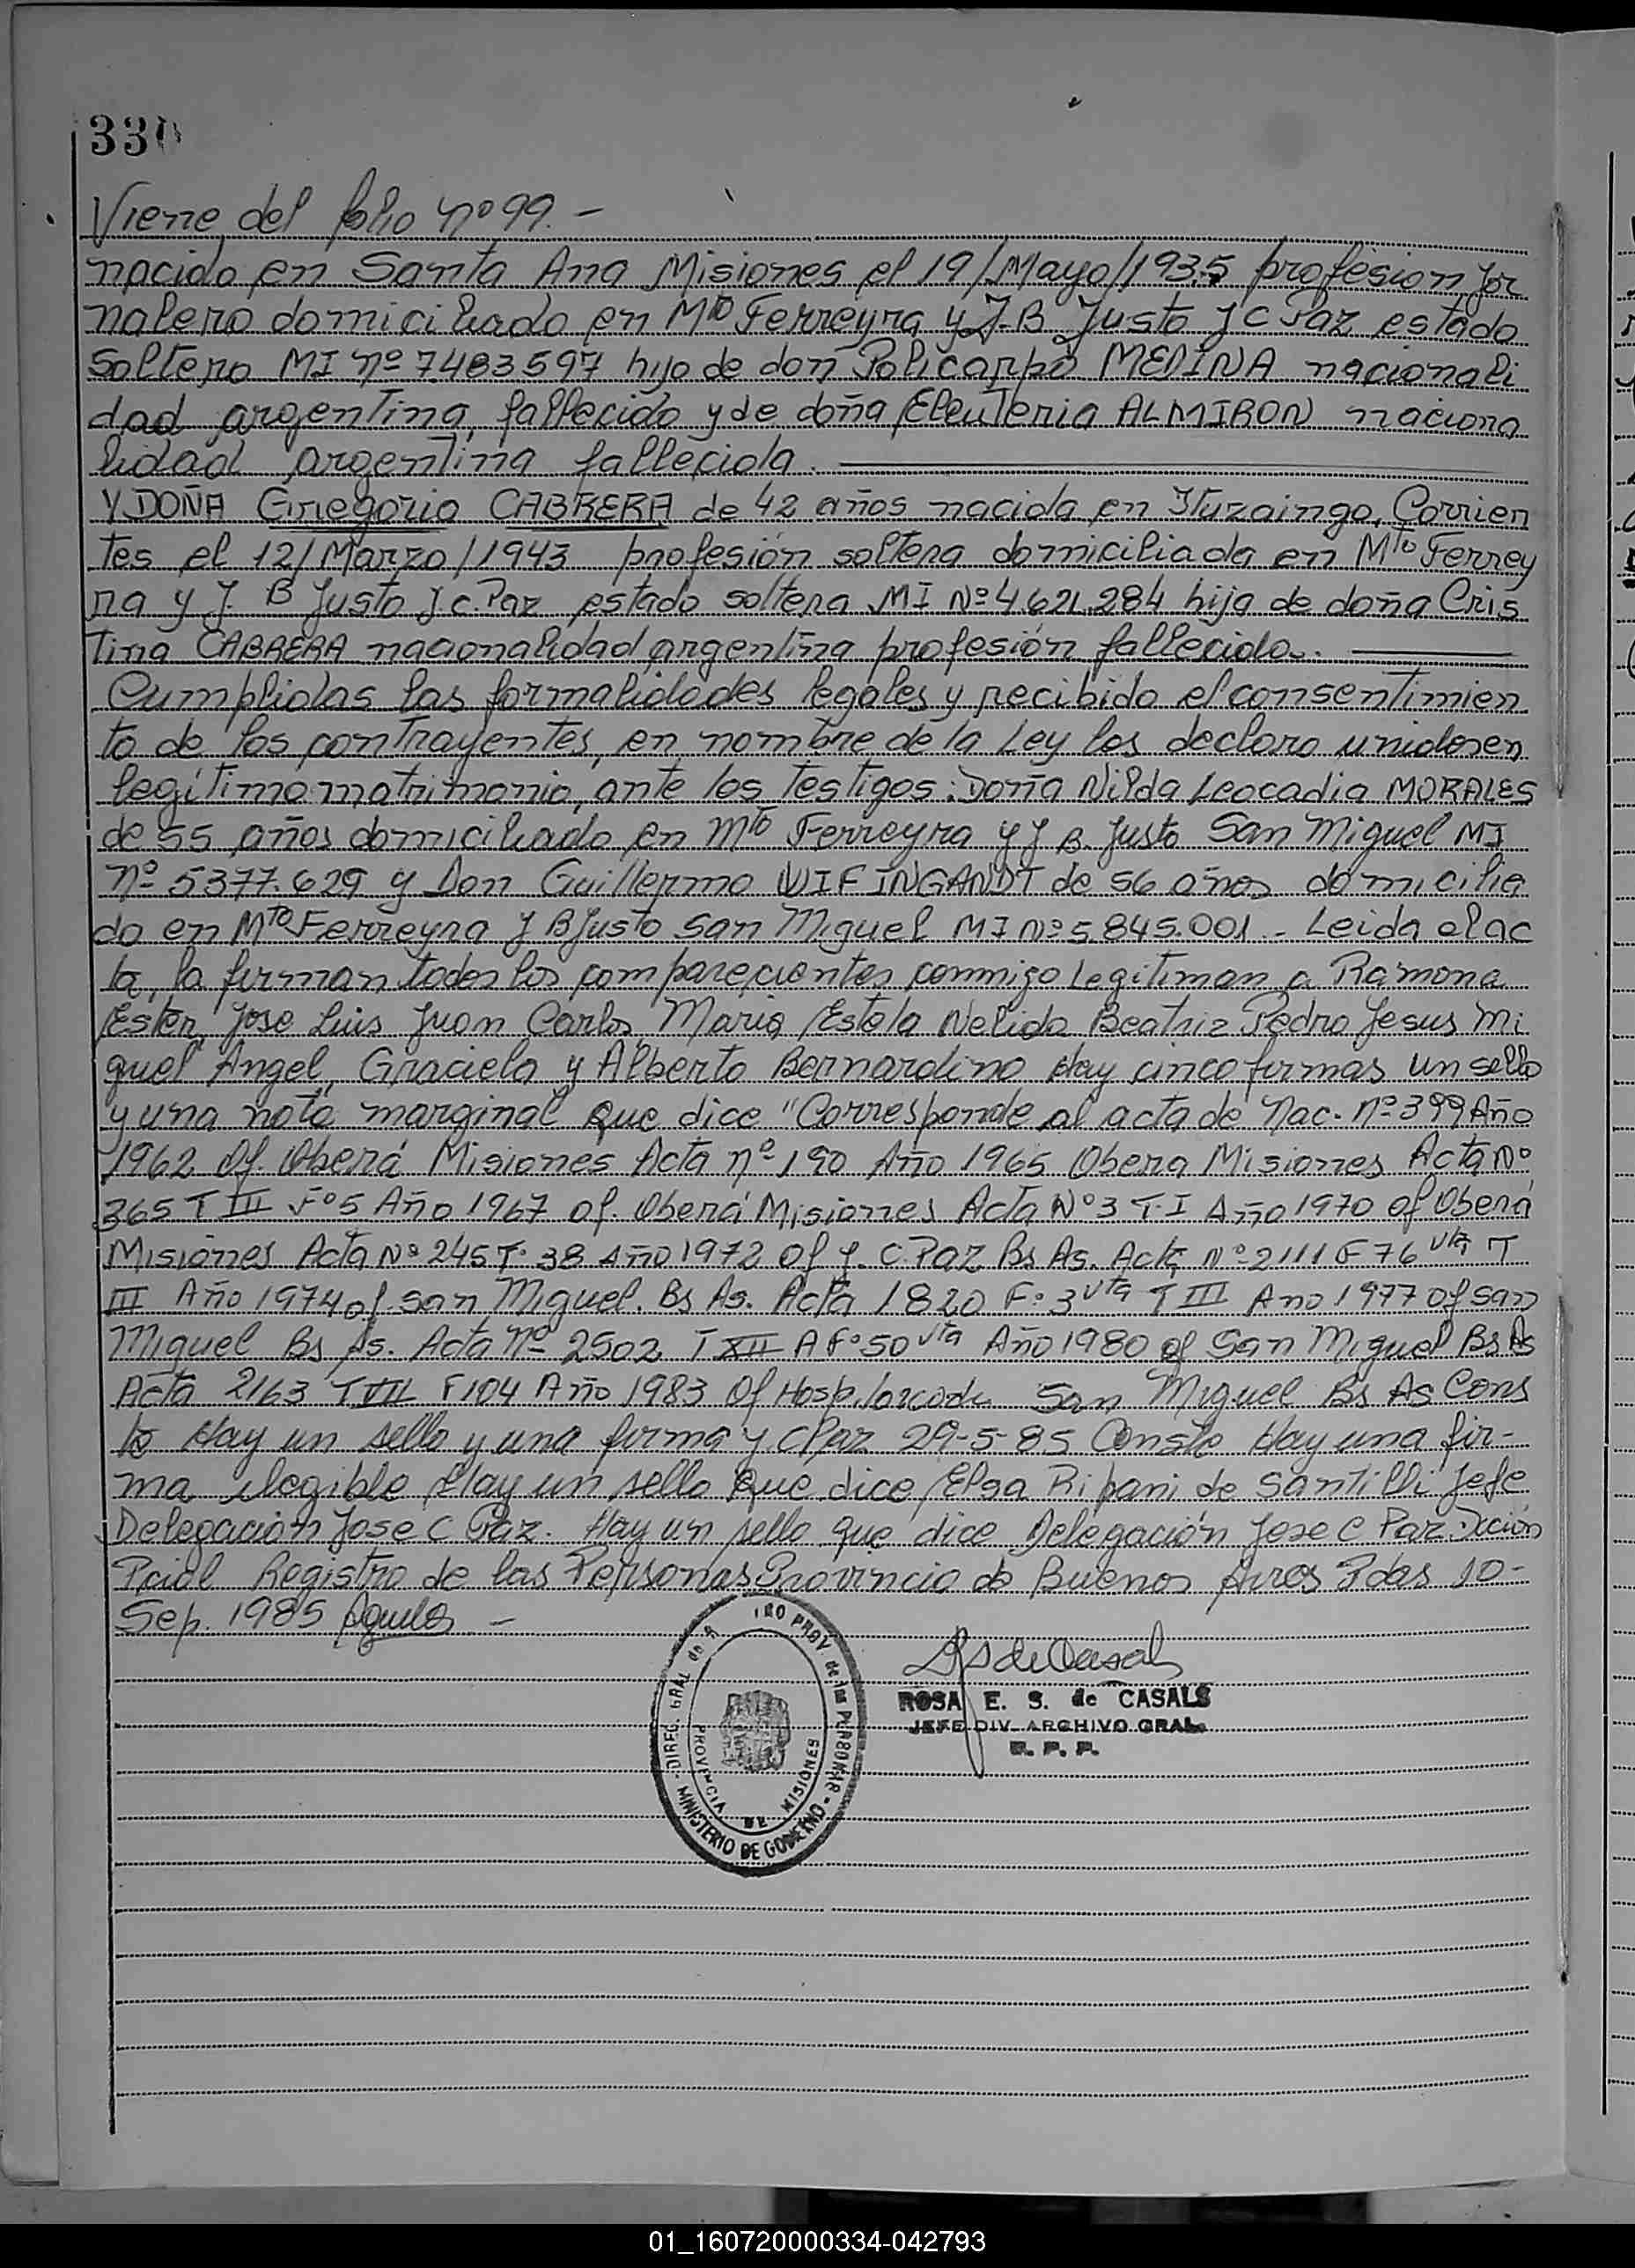 330
Viene del folio nº 99.-
nacido en Santa Ana Misiones el 19/Mayo/1935 profesion jor
nalero domiciliado en Mto Ferreyra y J.B. Justo J C Paz estado
soltero MI nº 7.483597 hijo de don Policarpo MEDINA nacionali
dad argentina, fallecido y de doña Eleuteria ALMIRON naciona
lidad argentina fallecida.
Y DOÑA Gregoria CABRERA de 42 años nacida en Ituzaingo, Corrien
tes el 12/Marzo/1943 profesión soltera domiciliada en Mto Ferrey
ra y J. B Justo J.C. Paz estado soltera MI Nº 4621.284 hija de doña Cris
tina CABRERA nacionalidad argentina profesión fallecido.
Cumplidas las formalidades legales y recibido el consentimien
to de los contrayentes, en nombre de la Ley los declaro unidos en
legítimo matrimonio, ante los testigos: Doña Nilda Leocadia MORALES
de 55 años domiciliado en Mto Ferreyra y J B. Justo San Miguel MI
Nº 5377.629 y Don Guillermo WIFINGANDT de 56 años domicilia
do en Mto Ferreyra J B Justo San Miguel MI Nº 5.845.001.- Leida el ac
ta, la firman todos los comparecientes conmigo Legitiman a Ramona
Ester, Jose Luis Juan Carlos, Maria Estela Nelida Beatriz Pedro Jesus Mi
guel Angel, Graciela y Alberto Bernardino Hay cinco firmas un sello
y una nota marginal que dice "Corresponde al acta de Nac. nº 399 Año
1962 Of. Oberá Misiones Acta nº 190 Año 1965 Obera Misiones Acta Nº
365 T III Fº 5 Año 1967 of. Oberá Misiones Acta Nº 3 T.I Año 1970 of Oberá
Misiones Acta Nº 245 T. 38 Año 1972 Of J. C. Paz Bs As. Acta nº 2111 F 76 vta T
III Año 1974 of. San Miguel. Bs As. Acta 1820 F: 3 vta T III Ano 1977 Of San
Miguel Bs As. Acta Nº 2502 T XII A Fº 50 vta Año 1980 of San Miguel Bs As
Acta 2163 T VII F 104 Año 1983 Of Hosp. San Miguel Bs As Cons
te Hay un sello y una firma J CPaz 29-5-85 Conste Hay una fir-
ma ilegible Hay un sello que dice Elsa Ripani de Santilli Jefe
Delegación Jose C Paz. Hay un sello que dice Delegación Jose C Paz Dción
Pcial Registro de las Personas Provincia de Buenos Aires Pdas 10-
Sep. 1985 -
DIREC. GRAL DEL REGISTRO PROV. de las PERSONAS - MINISTERIO DE GOBIERNO
PROVINCIA DE MISIONES
ROSA E. S. de CASALS
JEFE DIV. ARCHIVO GRAL.
R. P. P.
01_160720000334-042793